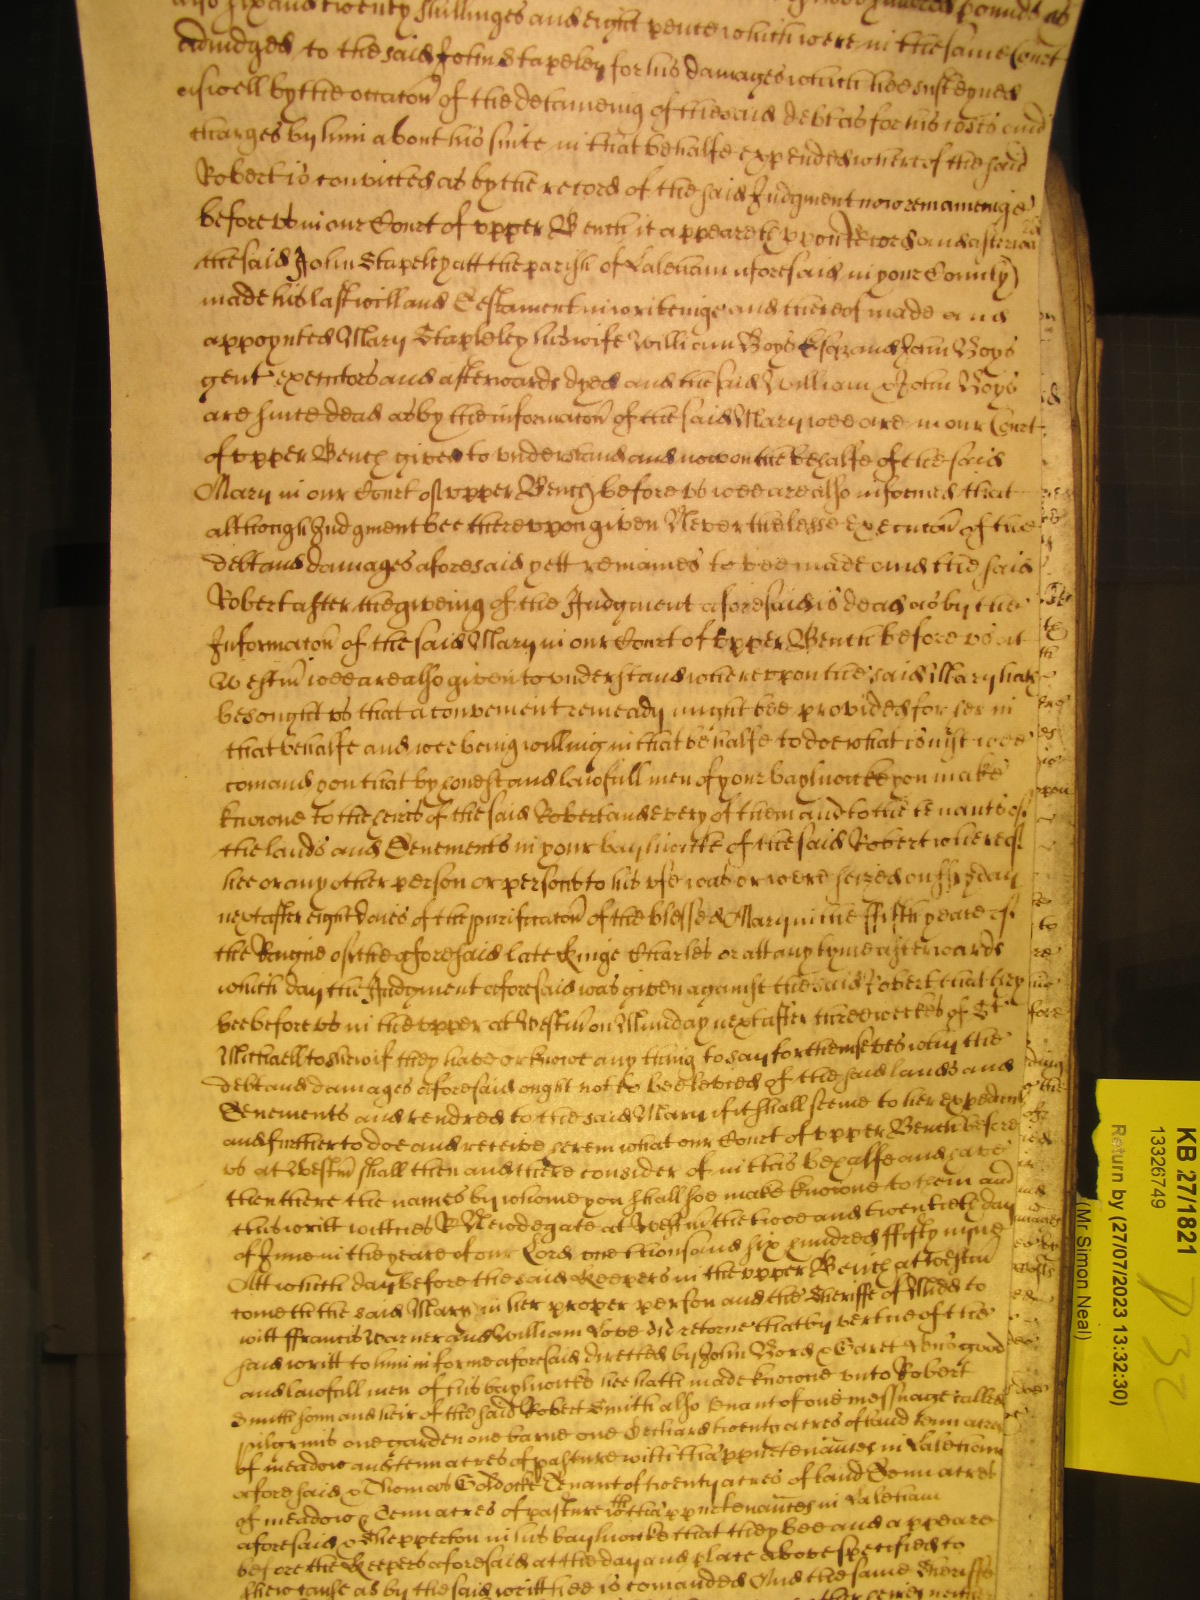 also six and twenty shillinges and eight pence which were in the same Court
adiudged to the said John Stapeley for his damages which hee susteyned
aswell by the occacon of the deteineing of the said debt as for his costs and
charges by him about his suite in that behalfe expended whereof the said
Robert is convicted as by the record of the said Judgment now remaineinge
before us in our Court of upper Bench it appeareth upon Record and afterwards
the said John Stapeley att the parish of Laleham aforesaid in your County
made his last will and Testament in writeinge and thereof made and
appoynted Mary Stapleley his wife William Boys Esqr and John Boys
gent executors and afterwards dyed and the said William & John Boys
are since dead as by the informacon of the said Mary wee are in our Court
of upper Bench given to understand and now on the behalfe of the said
Mary in our Court of upper Bench before us wee are also informed that
although Judgment bee thereupon given Neverthelesse Execucon of the
debt and damages aforesaid yett remaines to bee made and the said
Robert after the giveing of the Judgment aforesaid is dead as by the
Informacon of the said Mary in our Court of upper Bench before us at
Westm wee are also given to understand whereupon the said Mary hath
besought us that a convenient remeady might bee provided for her in
that behalfe and wee being willing in that behalfe to doe what is just wee
comand you that by honest and lawfull men of your bayliwicke you make
knowne to the heires of the said Robert and every of them and to the tenants of
the lands and Tenements in your bayliwicke of the said Robert whereof
hee or any other person or persons to his use was or were seized on day
next after eight dayes of the purificacon of the blessed Mary in the ffifth yeare of
the Raigne of the aforesaid late Kinge Charles or att any tyme afterwards
which day the Judgment aforesaid was given against the said Robert that they
bee before us in the upper at Westm on Munday next after three weekes of St
Michaell to shew if they have or knowe any thing to say for themselves why the
debt and damages aforesaid ought not to bee levied of the said lands and
Tenements and rendred to the said Mary if it shall seeme to her expedient
and further to doe and receive herein what our Court of upper Bench before
us at Westm shall then and there consider of in this behalfe and have
then there the names by whome you shall soe make knowne to them and
this writt wittnes R Newdegate at Westm the twoe and twentieth day
of June in the yeare of our Lord one thousand six hundred ffifty nyne
Att which day before the said Keepers in the upper Bench at Westm
cometh the said Mary in her proper person and the Sheriffe of Midd to
witt ffrancis Warner and William Love did retorne that by vertue of the
said writt to him in forme aforesaid directed by John Bord & Garet good
and lawfull men of his bayliwicke hee hath made knowne unto Robert
Smith sonn and heir of the said Robert Smith also tenant of one messuage called
pilgrims one garden one barne one Orchard twenty acres of land tenn acres
of meadow and tenn acres of pasture with thappurtenances in Laleham
aforesaid & Thomas Tenant of twenty acres of land Tenn acres
of meadow & Tenn acres of pasture with thappurtenances in Laleham
aforesaid & Shepperton in his bayliwicke that they bee and appeare
before the Keepers aforesaid at the day and place above specified to
shew cause as by the said writt hee is comanded And the same Sheriffe
KB 27/1821
13326749
Return by (27/07/2023 13:32:30)
(Mr Simon Neal)